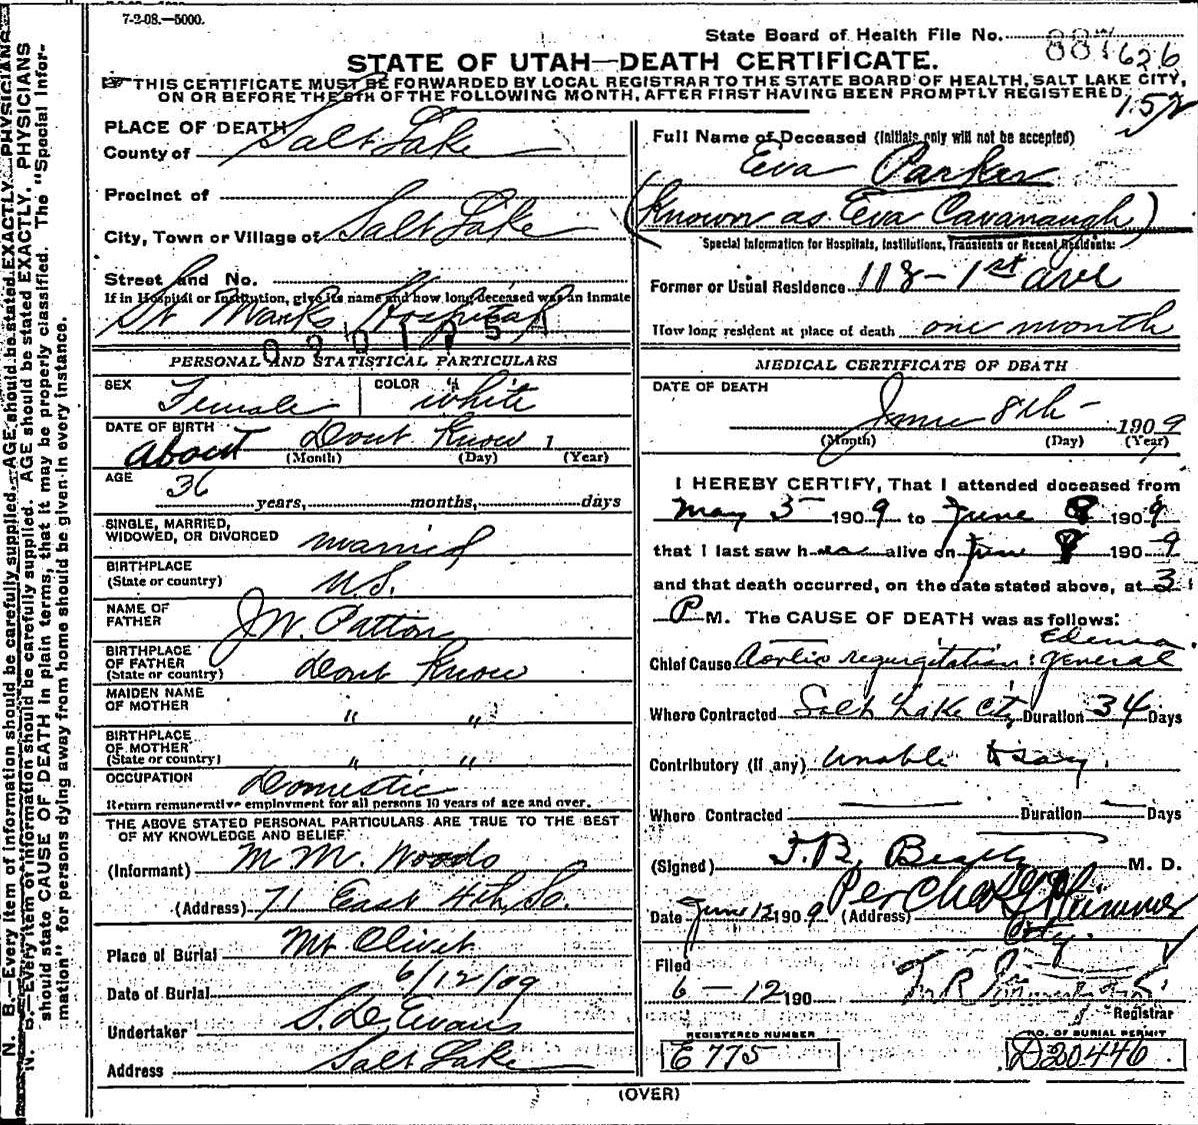 7-2-08.—5000.
State Board of Health File No. 626
STATE OF UTAH—DEATH CERTIFICATE.
THIS CERTIFICATE MUST BE FORWARDED BY LOCAL REGISTRAR TO THE STATE BOARD OF HEALTH, SALT LAKE CITY,
ON OR BEFORE THE 5TH OF THE FOLLOWING MONTH, AFTER FIRST HAVING BEEN PROMPTLY REGISTERED.
PLACE OF DEATH
County of Salt Lake
Precinct of
City, Town or Village of Salt Lake
Street and No.
If in Hospital or Institution, give its name and how long deceased was an inmate
St Marks Hospital
PERSONAL AND STATISTICAL PARTICULARS
SEX Female COLOR White
DATE OF BIRTH
about Dont Know 1
(Month) (Day) (Year)
AGE 36 years, months, days
SINGLE, MARRIED,
WIDOWED, OR DIVORCED married
BIRTHPLACE
(State or country) U.S.
NAME OF
FATHER J W. Patton
BIRTHPLACE
OF FATHER
(State or country) Dont Know
MAIDEN NAME
OF MOTHER " "
BIRTHPLACE
OF MOTHER
(State or country) " "
OCCUPATION Domestic
Return remunerative employment for all persons 10 years of age and over.
THE ABOVE STATED PERSONAL PARTICULARS ARE TRUE TO THE BEST
OF MY KNOWLEDGE AND BELIEF
(Informant) M M. Woods
(Address) 71 East 4th So.
Place of Burial Mt Olivet
Date of Burial 6/12/09
Undertaker S. De Evans
Address Salt Lake
Full Name of Deceased (Initials only will not be accepted)
Eva Parker
(Known as Eva Cavanaugh)
Special Information for Hospitals, Institutions, Transients or Recent Residents:
Former or Usual Residence 118 - 1st ave
How long resident at place of death one month
MEDICAL CERTIFICATE OF DEATH
DATE OF DEATH
June 8th - 1909
(Month) (Day) (Year)
I HEREBY CERTIFY, That I attended deceased from
May 5 1909 to June 8 1909
that I last saw her alive on June 8 1909
and that death occurred, on the date stated above, at 3
P M. The CAUSE OF DEATH was as follows:
Edema
Chief Cause Aortic regurgitation : general
Where Contracted Salt Lake City Duration 34 Days
Contributory (if any) unable to say.
Where Contracted Duration Days
(Signed) M. D.
Date June 12 1909 (Address)
City.
Filed
6 - 12 190
Registrar
REGISTERED NUMBER
E 775
NO. OF BURIAL PERMIT
D20446
(OVER)
N. B.—Every item of information should be carefully supplied. AGE should be stated EXACTLY. PHYSICIANS
should state CAUSE OF DEATH in plain terms, that it may be properly classified. The "Special Infor-
mation" for persons dying away from home should be given in every instance.